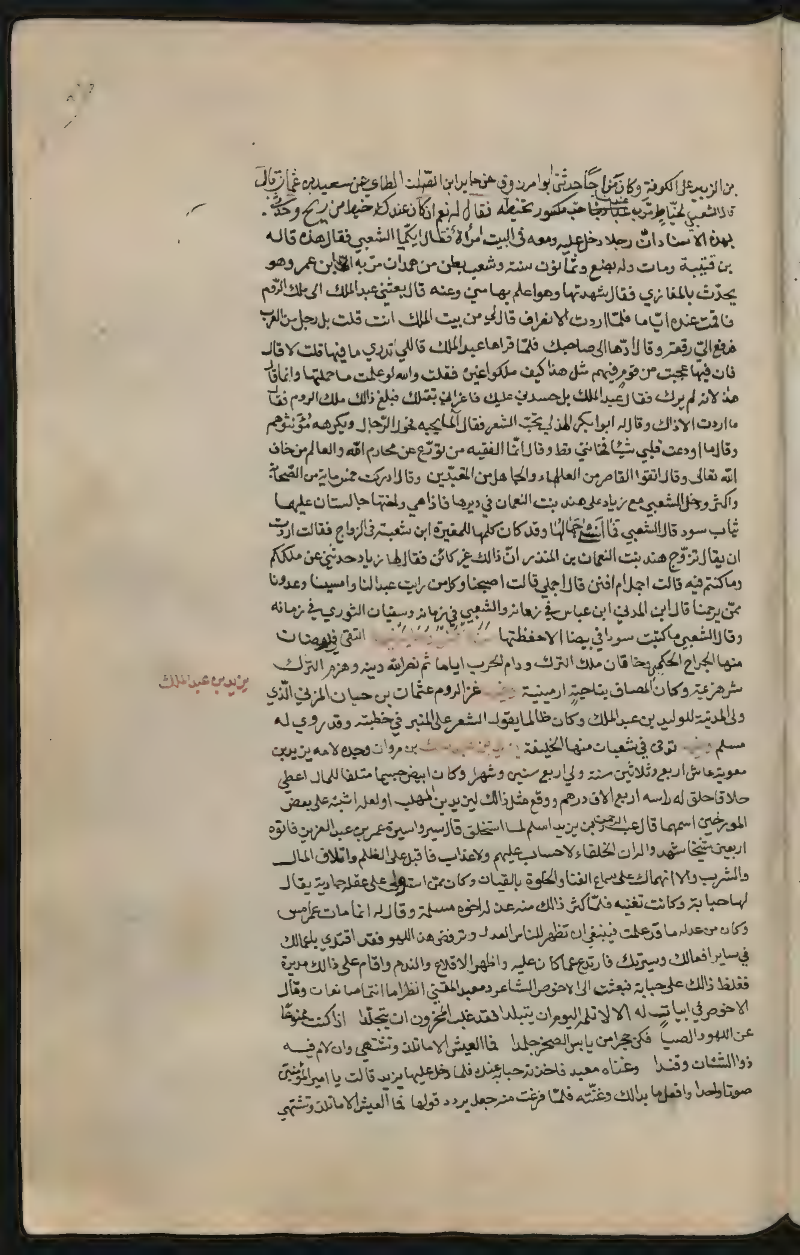 بن الزبير على الكوفة وكان مزاحا حدثني ابو مرزوق عن جابر ابن الصلت الطاي عن سعيد بن عثمان قال
قال الشعبي لخياط مر به عندنا حب مكسور تخيطه فقال له نعم ان كان عندك خيط من ريح وحدثني
بهذه الاسناد ان رجلا دخل عليه ومعه في البيت امراة فقال ايكما الشعبي فقال هذه قاله
بن قتيبة ومات وله بضع وثمانون سنة وشعب بطن من همدان مر به ابن عمر وهو
يحدث بالمغازي فقال شهدتها وهو اعلم بها مني وعنه قال بعثني عبد الملك الى ملك الروم
فاقمت عنده اياما فلما اردت الانصراف قال لي من بيت الملك انت قلت بل رجل من العرب
فدفع الي رقعة وقال ادها الى صاحبك فلما قراها عبد الملك قال لي تدري ما فيها قلت لا قال
فان فيها عجبت من قوم فيهم مثل هذا كيف ملكوا غيره فقلت والله لو علمت ما حملتها وانما قال
هذا لانه لم يرك فقال عبد الملك بل حسدني عليك فاغراني بقتلك فبلغ ذالك ملك الروم فقال
ما اردت الا ذاك وقال له ابو بكر الهذلي تحب الشعر فقال انما يحبه فحول الرجال ويكرهه مؤنثوهم
وقال ما اودعت قلبي شيئا فخانني قط وقال انما الفقيه من تورع عن محارم الله والعالم من خاف
الله تعالى وقال اتقوا الفاجر من العلماء والجاهل من المتعبدين وقال ادركت خمس ماية من الصحابة
واكثر ودخل الشعبي مع زياد على هند بنت النعمان في ديرها فاذا هي واختها جالستان عليهما
ثياب سود قال الشعبي فما انسى جمالها وقد كان كلمها المغيرة ابن شعبة في الزواج فقالت اردت
ان يقال تزوج هند بنت النعمان بن المنذر ان ذالك غير كائن فقال لها زياد حدثيني عن ملككم
وما كنتم فيه قالت اجمل ام افنن قال اجملي قالت اصبحنا وكل من رايت عبد لنا وامسينا وعدونا
ممن يرحمنا قال ابن المدني ابن عباس في زمانه والشعبي في زمانه وسفيان الثوري في زمانه
وقال الشعبي ما كتبت سودا في بيضا الا حفظتها التقى في رمضان
منها الجراح الحكمي بخاقان ملك الترك ودام الحرب اياما ثم نصر الله دينه وهزم الترك
شر هزيمة وكان المصاف بناحية ارمينية وفيها غزا الروم عثمان بن حيان المزني الذي
ولي المدينة للوليد بن عبد الملك وكان ظالما يقول الشعر على المنبر في خطبته وقد روي له
مسلم وفيها توفي في شعبان منها الخليفة يزيد بن عبد الملك بن مروان وجده لامه يزيد بن
معوية عاش اربع وثلاثين سنة ولي اربع سنين وشهرا وكان ابيض جسيما متلفا للمال اعطى
حلاقا حلق له راسه اربع الاف درهم ووقع مثل ذالك ليزيد بن المهلب او لعله اشبه على بعض
المورخين اسمهما قال عبد الرحمن بن يزيد اسلم لما استخلف قال سيروا سيرة عمر بن عبد العزيز فاتوه
اربعين شيخا شهدوا له ان الخلفاء لا حساب عليهم ولا عذاب فاقبل على الظلم واتلاف المال
والشرب والانهماك على سماع الغنا والخلوة بالقيان وكان ممن استولى على عقله جارية يقال
لها حبابة وكانت تغنيه فلما كثر ذالك منه عذله اخوه مسلمة وقال له انما مات عمر امس
وكان من عدله ما قد علمت فينبغي ان تظهر للناس العدل وترفض هذا اللهو فقد اقتدى بك عمالك
في ساير افعالك وسيرتك فارتدع عما كان عليه واظهر الاقلاع والندم واقام على ذالك مدة
فغلظ ذالك على حبابة فبعثت الى الاحوص الشاعر ومعبد المغني انظرا ما انتما صانعان وقال
الاحوص في ابيات له الا لا تلمه اليوم ان يتبلدا فقد غلب المحزون ان يتجلدا اذا كنت ممنوعا
عن اللهو والصبا فكن حجرا من يابس الصخر جلدا فما العيش الا ما تلذ وتشتهي وان لام فيه
ذو الشنئان وفندا وغناه معبد فاخذته حبابة عنه فلما دخل عليها يزيد قالت يا امير المؤمنين
صوتا واحدا وافعل ما بدالك وغنته فلما فرغت منه جعل يردد قولها فما العيش الا ما تلذ وتشتهي
يزيد بن عبد الملك